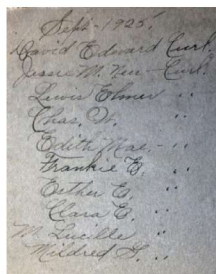 Sept - 1925.
David Edward Curl.
Jessie M. Neu - Curl.
Lewis Elmer " "
Chas. W. " "
Edith Mae. - " "
Frankie E. " "
Esther E. " "
Clara E. " "
M. Lucille " "
Mildred L. " "